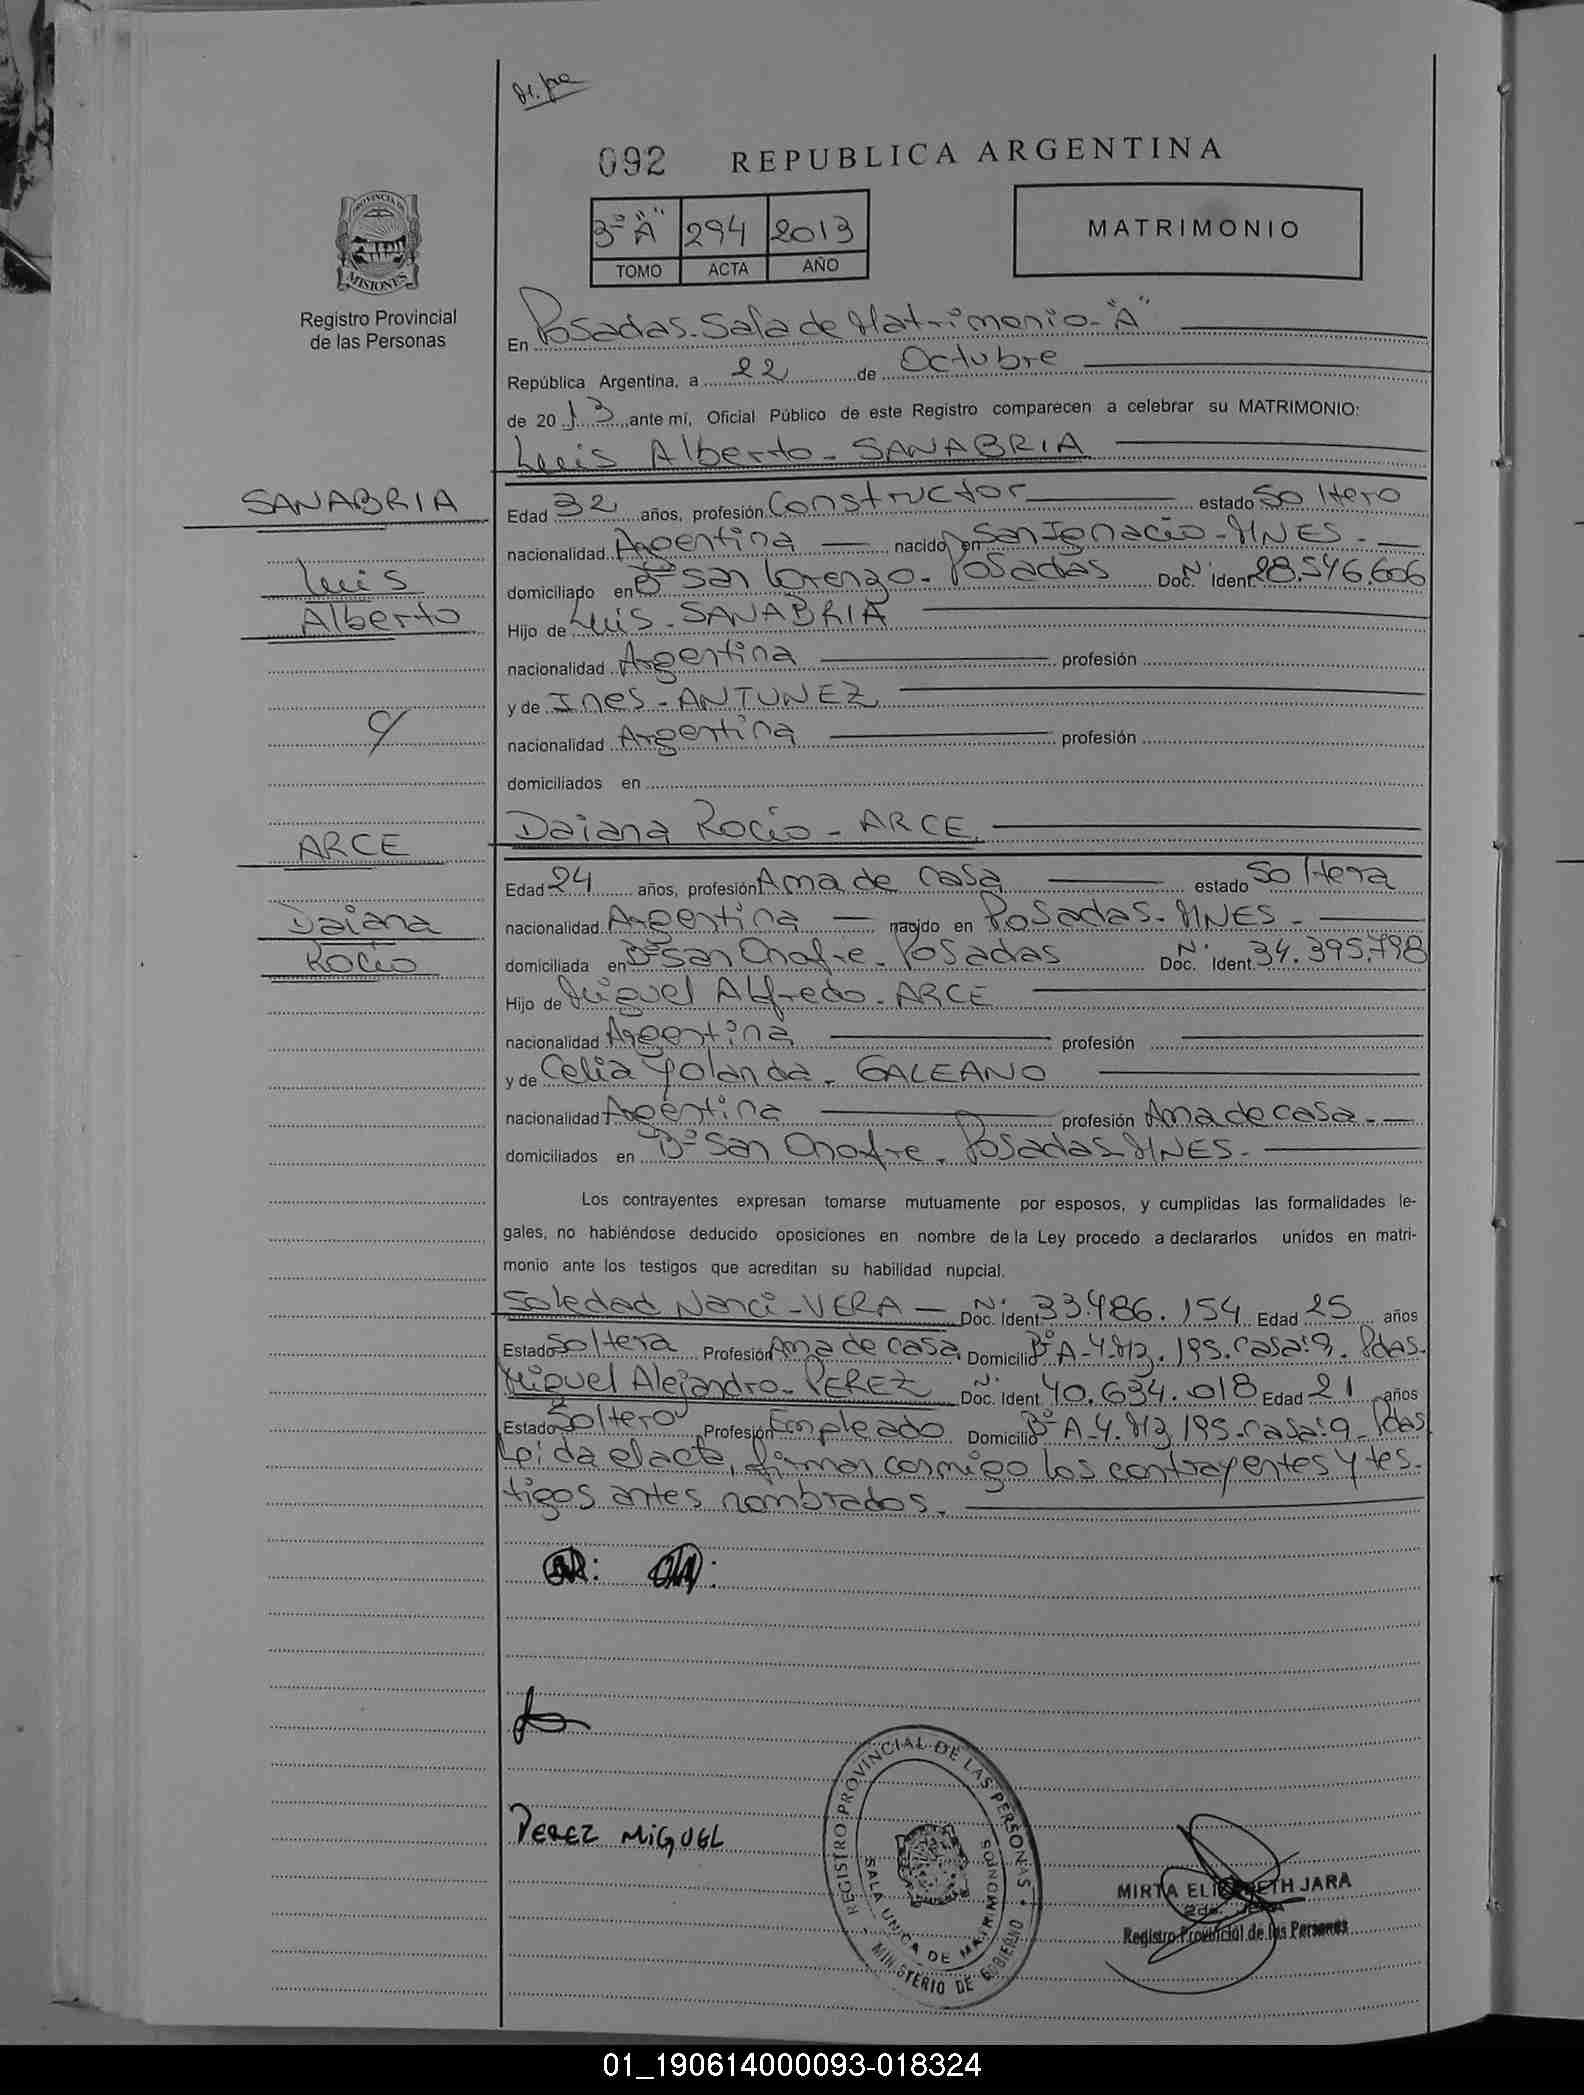 092 REPUBLICA ARGENTINA
3º "A" 294 2013
TOMO ACTA AÑO
MATRIMONIO
PROVINCIA DE
MISIONES
Registro Provincial
de las Personas
En Posadas. Sala de Matrimonio-"A"
República Argentina, a 22 de Octubre
de 2013 ante mí, Oficial Público de este Registro comparecen a celebrar su MATRIMONIO:
Luis Alberto - SANABRIA
SANABRIA
Luis
Alberto
Edad 32 años, profesión Constructor estado Soltero
nacionalidad Argentina nacido en San Ignacio - MNES.
domiciliado en Bº San Lorenzo - Posadas Doc. Nº Ident. 28.546.606
Hijo de Luis - SANABRIA
nacionalidad Argentina profesión
y de Ines - ANTUNEZ
nacionalidad Argentina profesión
domiciliados en
c/
ARCE
Daiana
Rocio
Daiana Rocio - ARCE
Edad 24 años, profesión Ama de casa estado Soltera
nacionalidad Argentina nacido en Posadas - MNES.
domiciliada en Bº San Onofre - Posadas Doc. Nº Ident. 34.395.798
Hijo de Miguel Alfredo - ARCE
nacionalidad Argentina profesión
y de Celia Yolanda - GALEANO
nacionalidad Argentina profesión Ama de casa.
domiciliados en Bº San Onofre. Posadas MNES.
Los contrayentes expresan tomarse mutuamente por esposos, y cumplidas las formalidades le-
gales, no habiéndose deducido oposiciones en nombre de la Ley procedo a declararlos unidos en matri-
monio ante los testigos que acreditan su habilidad nupcial.
Soledad Nanci - VERA Doc. Nº Ident. 33.486.154 Edad 25 años
Estado Soltera Profesión Ama de casa Domicilio Bº A-4. Mz. 195. Casa: 9. Pdas.
Miguel Alejandro - PEREZ Doc. Nº Ident. 40.634.018 Edad 21 años
Estado Soltero Profesión Empleado Domicilio Bº A-4. Mz 195. Casa: 9. Pdas
Leida el acta, firman conmigo los contrayentes y tes-
tigos antes nombrados.
PEREZ MIGUEL
REGISTRO PROVINCIAL DE LAS PERSONAS
SALA UNICA DE MATRIMONIOS
MINISTERIO DE GOBIERNO
MIRTA ELIZABETH JARA
Registro Provincial de las Personas
01_190614000093-018324